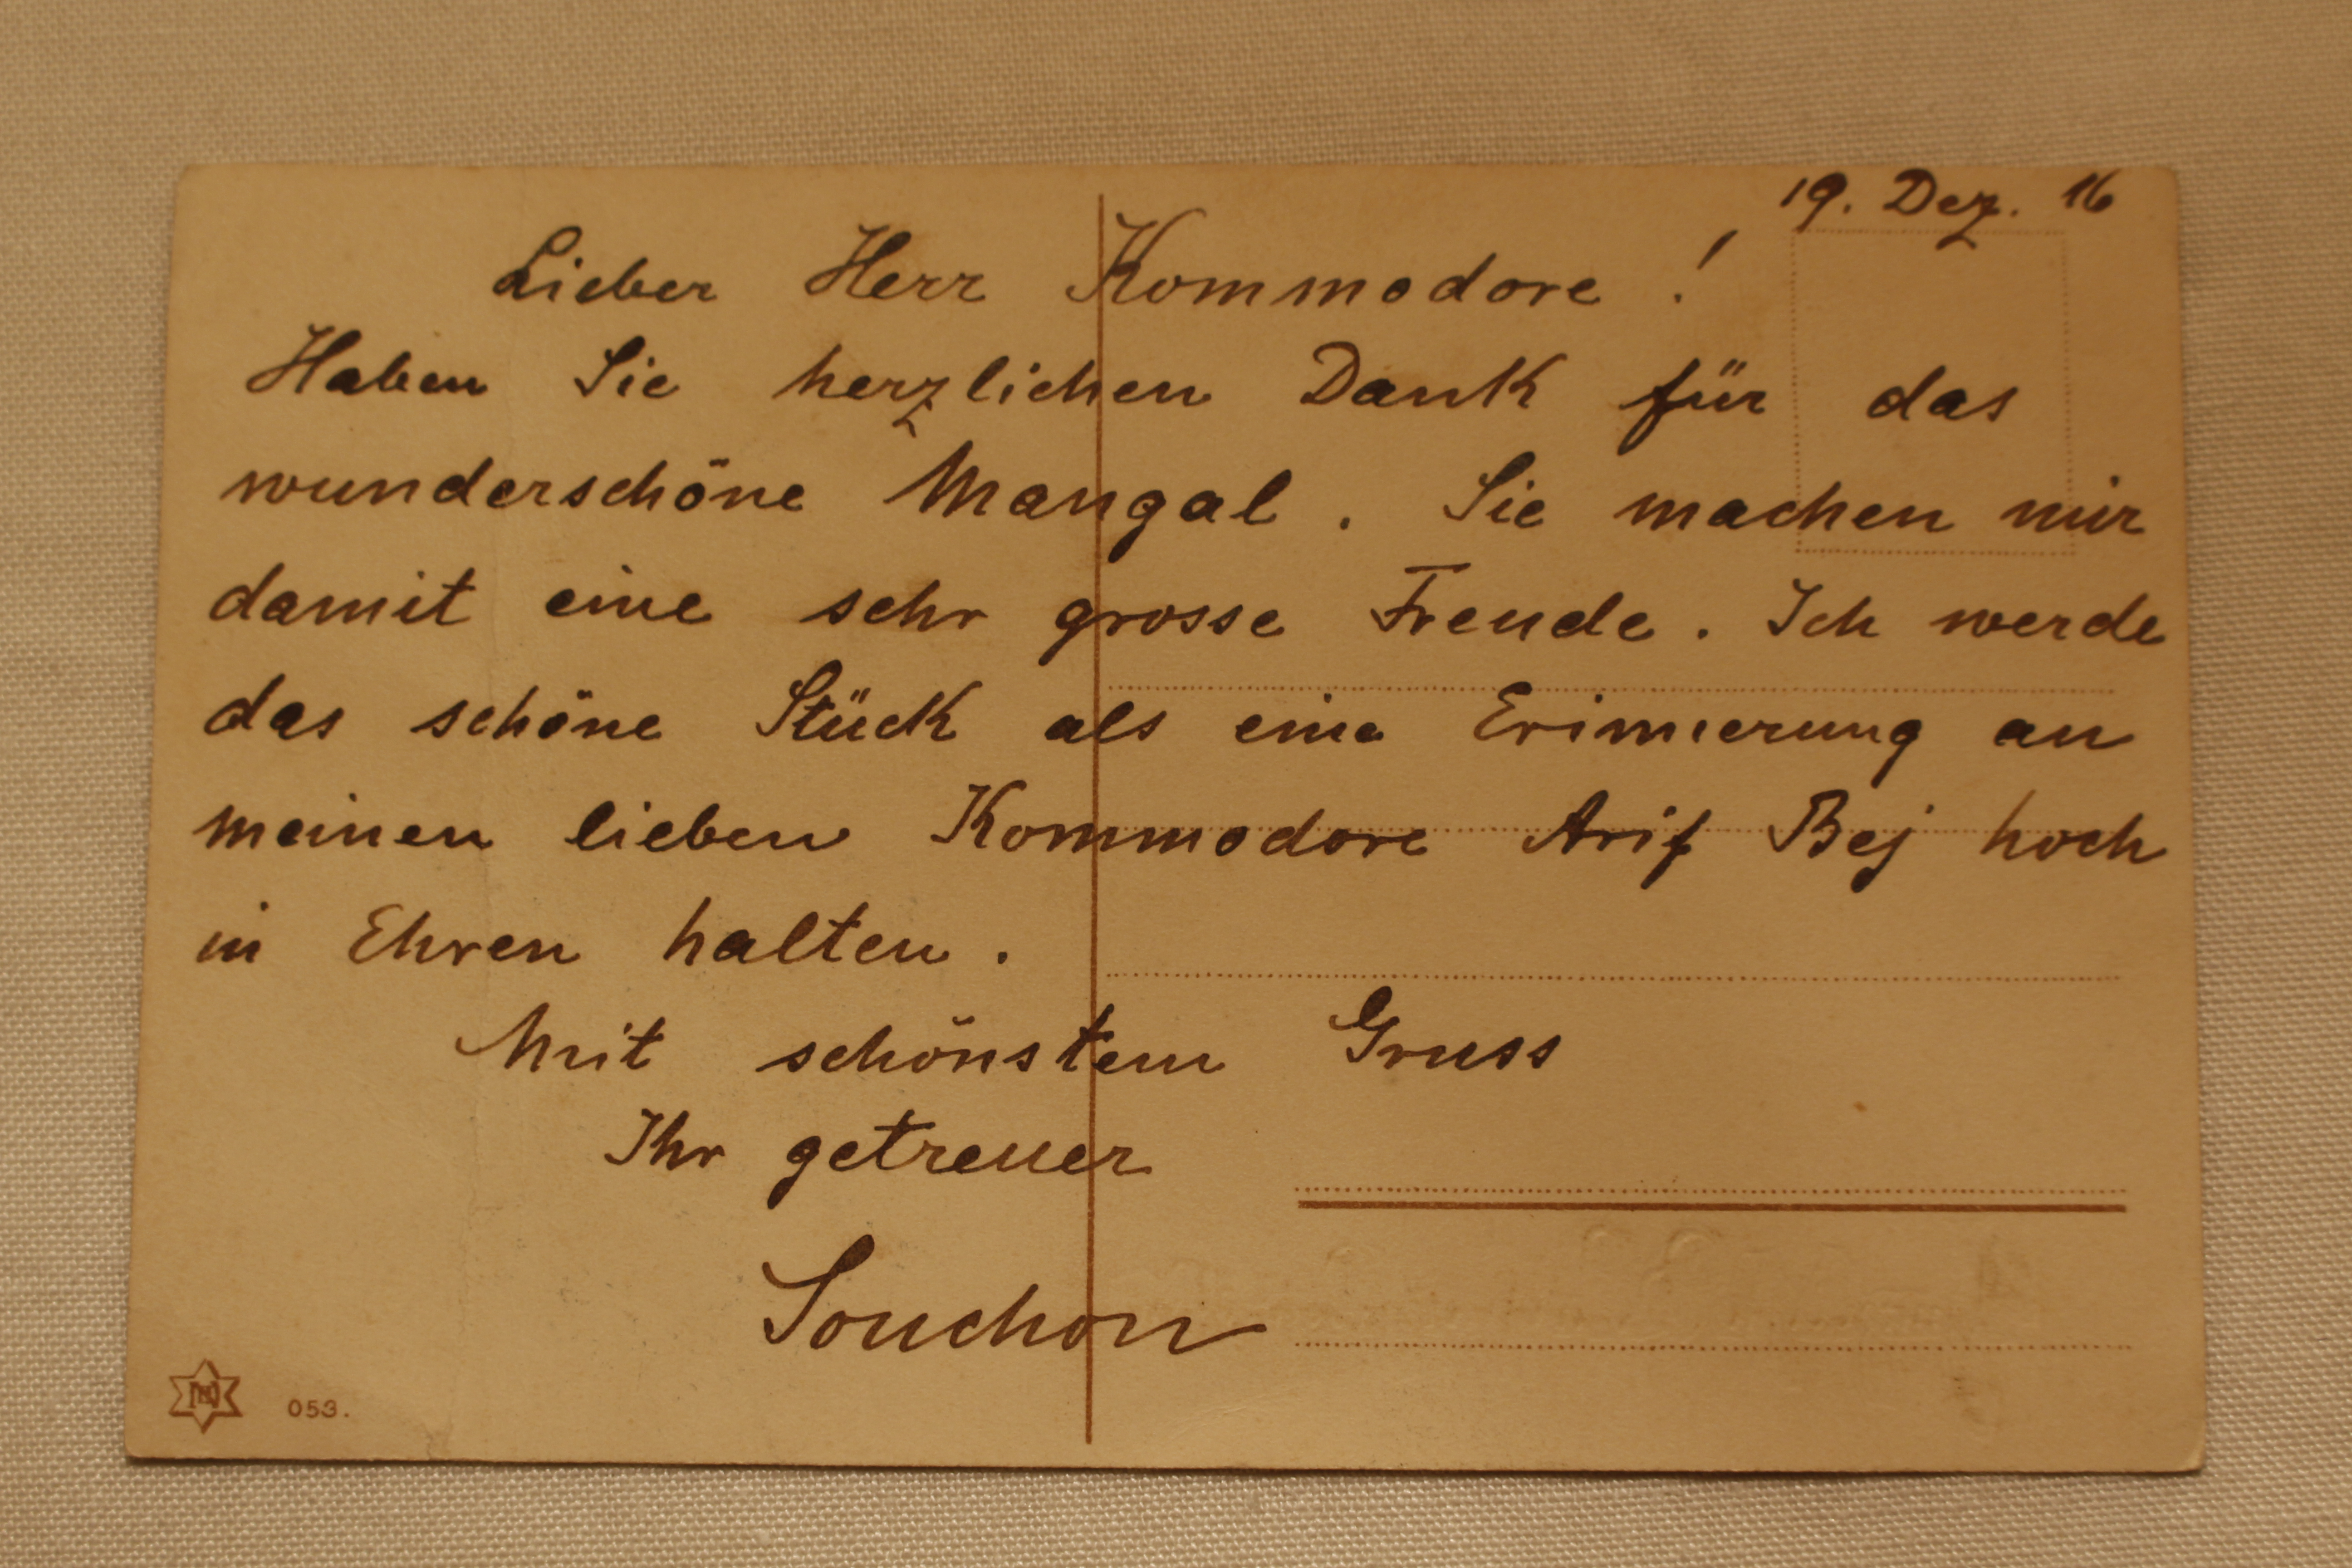 19. Dez. 16
Lieber Herr Kommodore !
Haben Sie herzlichen Dank für das
wunderschöne Mangal. Sie machen mir
damit eine sehr grosse Freude. Ich werde
das schöne Stück als eine Erinnerung an
meinen lieben Kommodore Arif Bej hoch
in Ehren halten.
Mit schönstem Gruss
Ihr getreuer
Souchon
053.